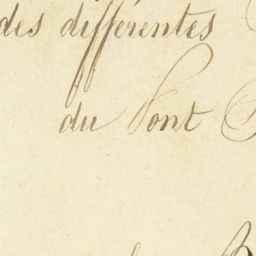 des différentes
du Pont